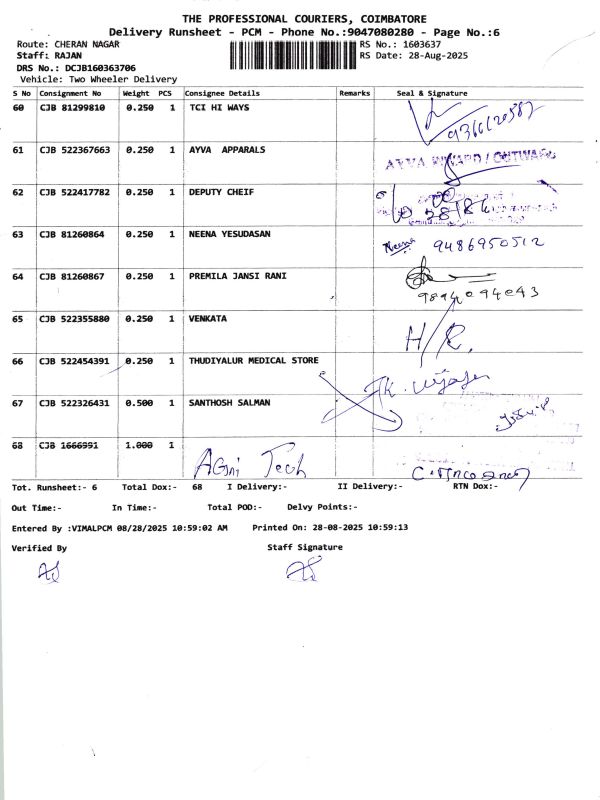 THE PROFESSIONAL COURIERS, COIMBATORE
Delivery Runsheet - PCM - Phone No.:9047080280 - Page No.:6
Route: CHERAN NAGAR RS No.: 1603637
Staff: RAJAN RS Date: 28-Aug-2025
DRS No.: DCJB160363706
Vehicle: Two Wheeler Delivery
S No Consignment No Weight PCS Consignee Details Remarks Seal & Signature
60 CJB 81299810 0.250 1 TCI HI WAYS
61 CJB 522367663 0.250 1 AYVA APPARALS AYVA INWARD / OUTWARD
62 CJB 522417782 0.250 1 DEPUTY CHEIF
63 CJB 81260864 0.250 1 NEENA YESUDASAN Neena 9486950512
64 CJB 81260867 0.250 1 PREMILA JANSI RANI
9894094043
65 CJB 522355880 0.250 1 VENKATA H/R.
66 CJB 522454391 0.250 1 THUDIYALUR MEDICAL STORE
67 CJB 522326431 0.500 1 SANTHOSH SALMAN
68 CJB 1666991 1.000 1 AGni Tech
Tot. Runsheet:- 6 Total Dox:- 68 I Delivery:- II Delivery:- RTN Dox:-
Out Time:- In Time:- Total POD:- Delvy Points:-
Entered By :VIMALPCM 08/28/2025 10:59:02 AM Printed On: 28-08-2025 10:59:13
Verified By Staff Signature